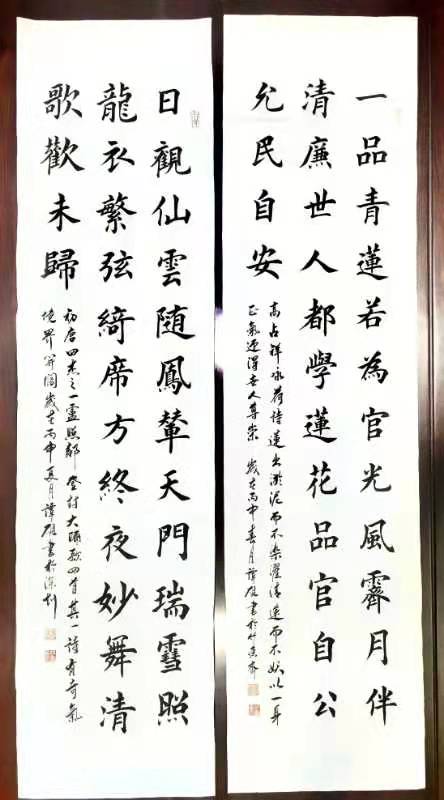 一品青蓮若為官光風霽月伴
清廉世人都學蓮花品官自公
允民自安
高占祥咏荷詩蓮出淤泥而不染濯清漣而不妖以一身
正氣迎得世人尊崇 歲在丙申春月譚雄書於竹香齋
日觀仙雲随鳳輦天門瑞雪照
龍衣繁弦綺席方終夜妙舞清
歌歡未歸
初唐四杰之一盧照鄰登封大酺歌四首其一詩有奇氣
境界開闊歲在丙申夏月譚雄書於深圳